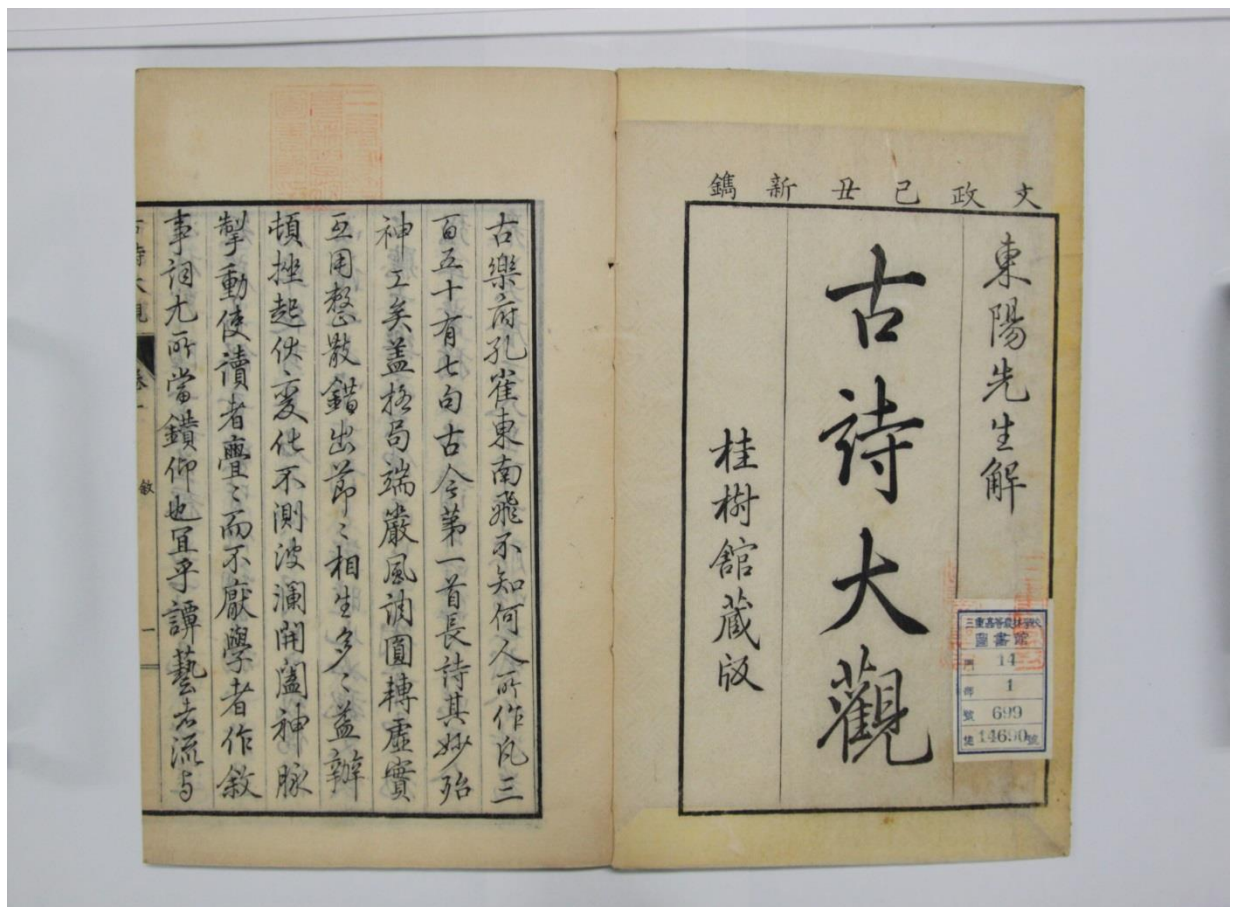 文政己丑新鐫
東陽先生解
古詩大觀
桂樹館蔵版
三重高等農林學校
圖書館
門 14
部 1
號 699
使 14690 號
古樂府孔雀東南飛不知何人所作凡三
百五十有七句古今第一首長詩其妙殆
神工矣盖格局端嚴風調圓轉虛實
互用整散錯出節〻相生多〻益辦
頓挫起伏変化不測波瀾開闔神脉
掣動使讀者亹〻而不厭學者作敘
事詞尤所當鑚仰也宜乎譚藝者流与
古詩大觀
卷一
敘
一